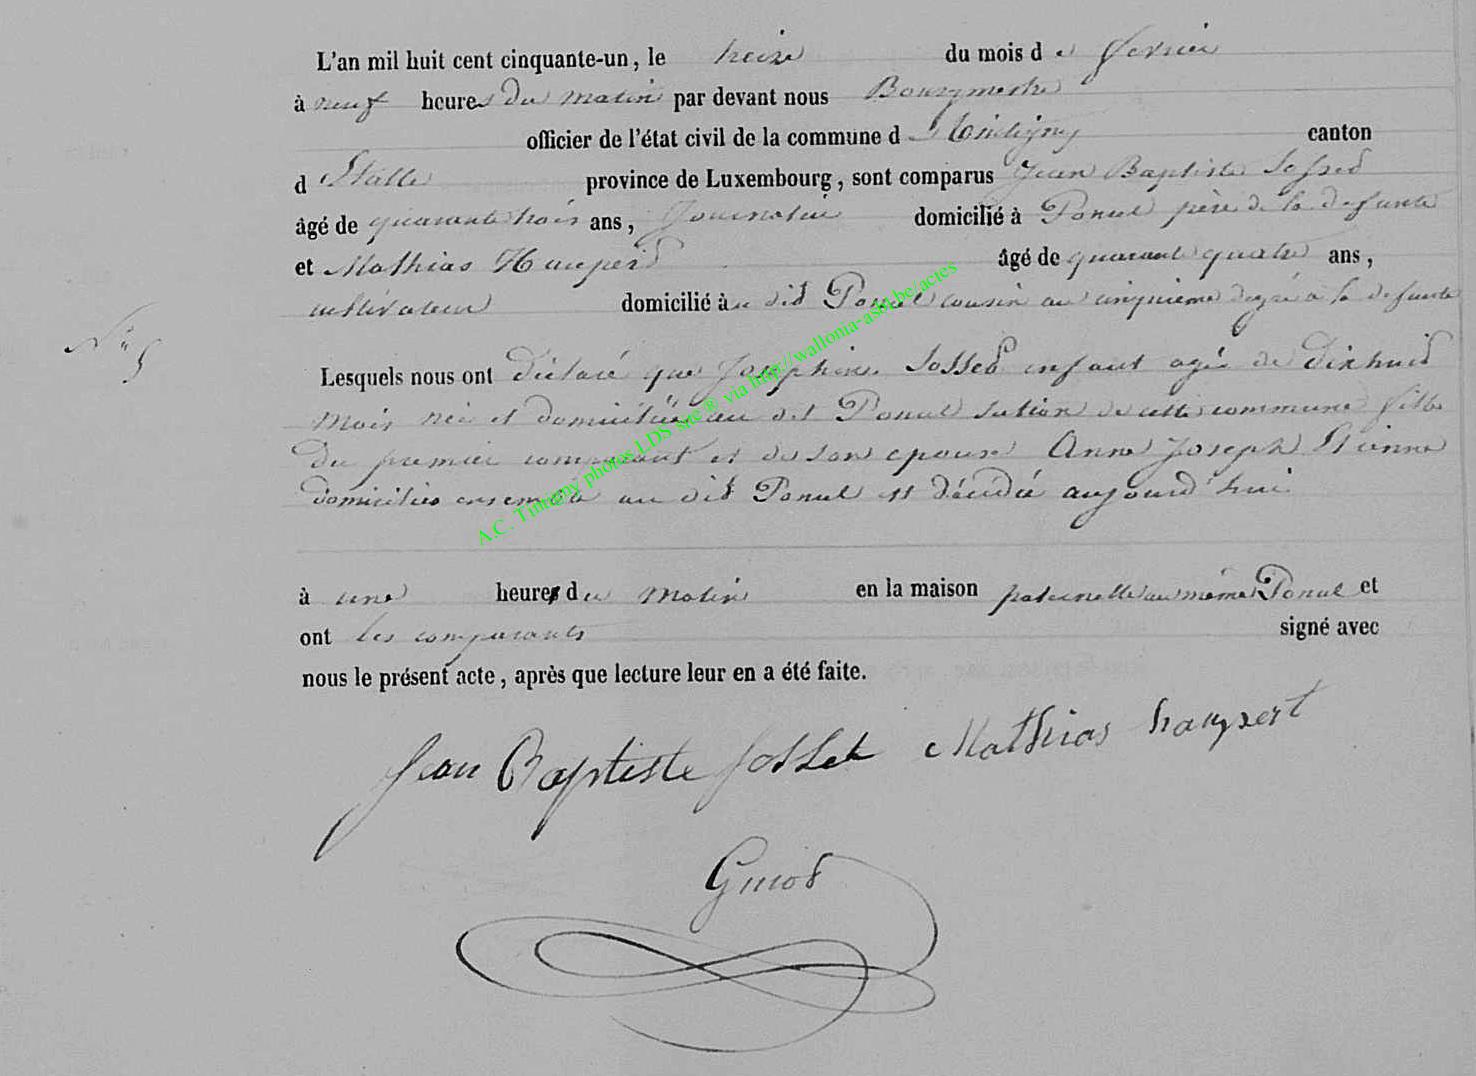 L'an mil huit cent cinquante-un, le treize du mois de fevrier
à neuf heures du matin par devant nous Bourgmestre
officier de l'état civil de la commune d Tintigny canton
d Etalle province de Luxembourg, sont comparus Jean Baptiste Josset
âgé de quarante trois ans, Journalier domicilié à Poncel père de la defunte
et Mathias Haupert âgé de quarante quatre ans,
cultivateur domicilié au dit Poncel cousin au cinquième degré à la defunte
N° 5
Lesquels nous ont déclaré que Josephine Josset enfant agée de dix huit
mois née et domiciliée au dit Poncel section de cette commune fille
du premier comparant et de son epouse Anne Joseph Etienne
domiciliés ensemble au dit Poncel est décédée aujourd'hui
à une heure du matin en la maison paternelle au même Poncel et
ont les comparants signé avec
nous le présent acte, après que lecture leur en a été faite.
Jean Baptiste Josset Mathias haupert
A.C. Tintigny photos LDS site® via http://wallonia-asbl.be/actes